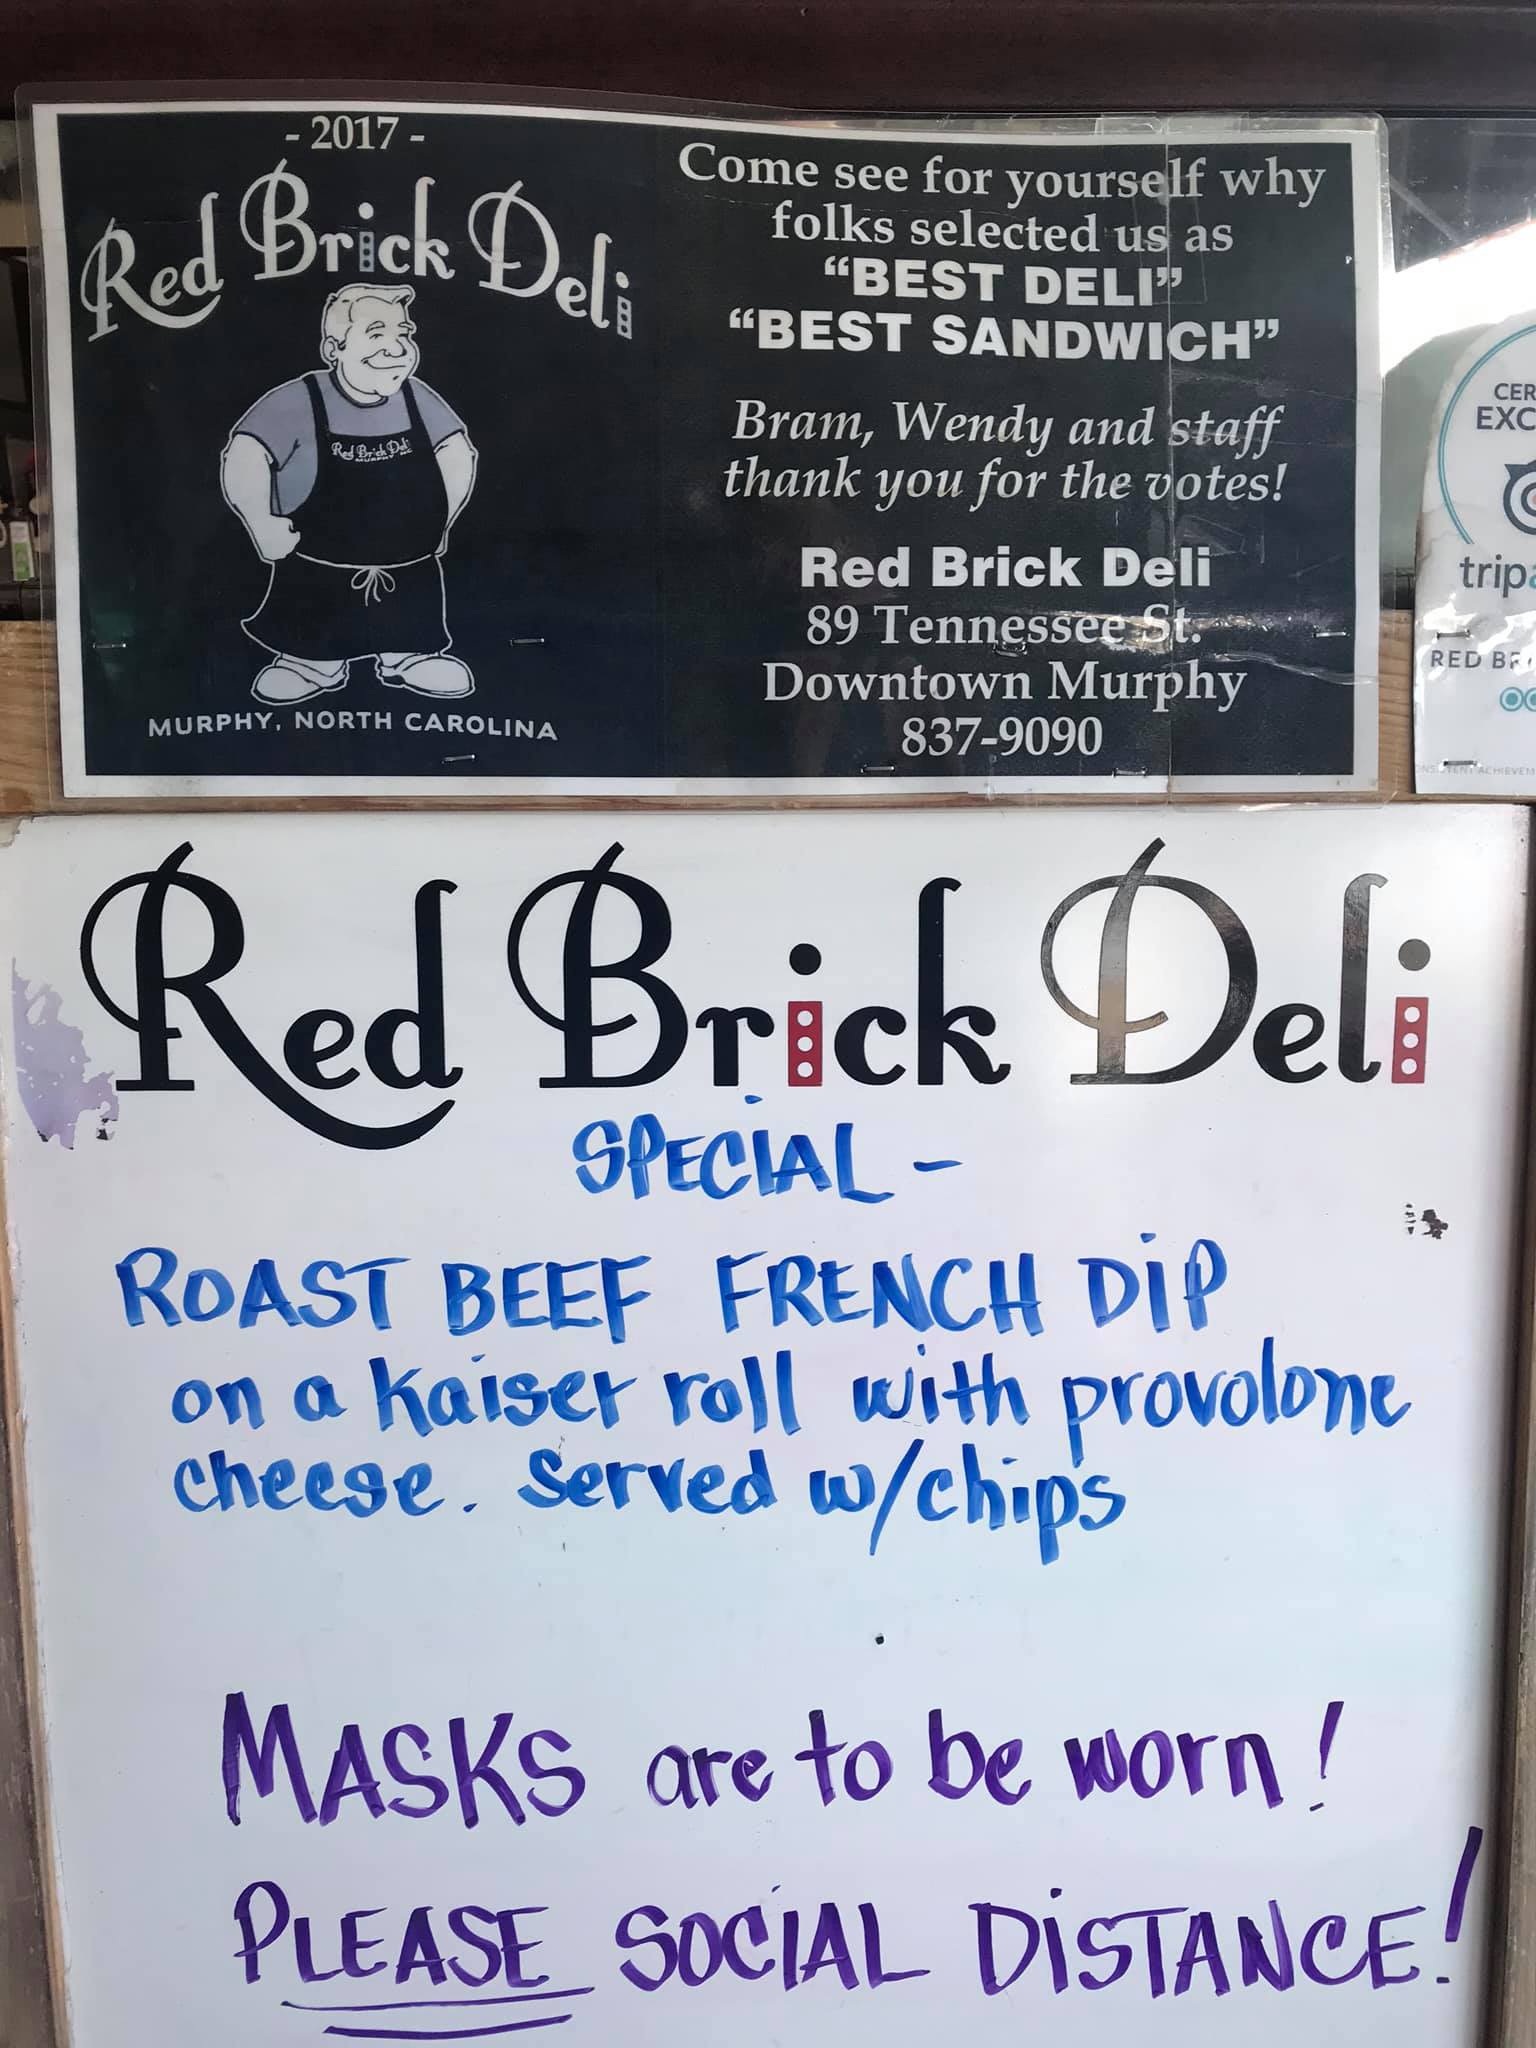 - 2017 -
Red Brick Deli
Red Brick Deli
MURPHY NC
MURPHY, NORTH CAROLINA
Come see for yourself why
folks selected us as
“BEST DELI”
“BEST SANDWICH”
Bram, Wendy and staff
thank you for the votes!
Red Brick Deli
89 Tennessee St.
Downtown Murphy
837-9090
CER
EXC
trip
RED BR
Red Brick Deli
SPECIAL -
ROAST BEEF FRENCH DIP
on a kaiser roll with provolone
cheese. Served w/chips
MASKS are to be worn!
PLEASE SOCIAL DISTANCE!